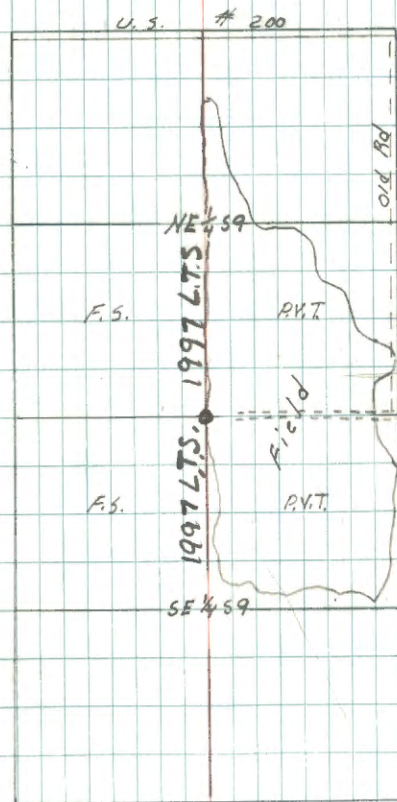 U.S. # 200
Old Rd
NE 1/4 S9
F.S.
1997 L.T.S
P.V.T.
Field
F.S.
1997 L.T.S.
P.V.T.
SE 1/4 S9